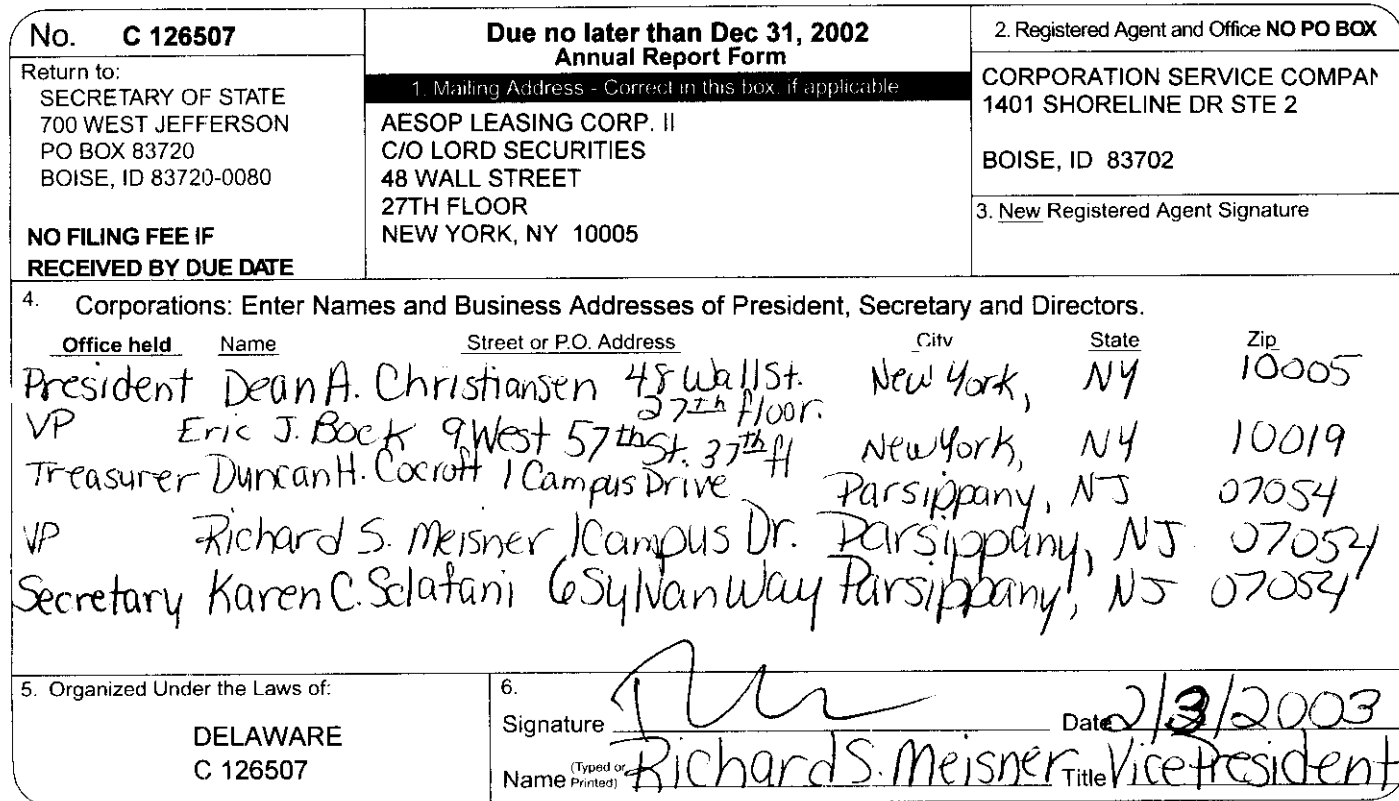 No. C 126507
Return to:
SECRETARY OF STATE
700 WEST JEFFERSON
PO BOX 83720
BOISE, ID 83720-0080
NO FILING FEE IF
RECEIVED BY DUE DATE
Due no later than Dec 31, 2002
Annual Report Form
1. Mailing Address - Correct in this box, if applicable
AESOP LEASING CORP. II
C/O LORD SECURITIES
48 WALL STREET
27TH FLOOR
NEW YORK, NY 10005
2. Registered Agent and Office NO PO BOX
CORPORATION SERVICE COMPAN
1401 SHORELINE DR STE 2
BOISE, ID 83702
3. New Registered Agent Signature
4. Corporations: Enter Names and Business Addresses of President, Secretary and Directors.
Office held Name Street or P.O. Address City State Zip
President Dean A. Christiansen 48 Wall St. 27th floor. New York, NY 10005
VP Eric J. Bock 9 West 57th St. 37th fl New York, NY 10019
Treasurer Duncan H. Cocroft 1 Campus Drive Parsippany, NJ 07054
VP Richard S. Meisner 1 Campus Dr. Parsippany, NJ 07054
Secretary Karen C. Sclafani 6 Sylvan Way Parsippany, NJ 07054
5. Organized Under the Laws of:
DELAWARE
C 126507
6.
Signature Date 2/3/2003
Name (Typed or Printed) Richard S. Meisner Title Vice President